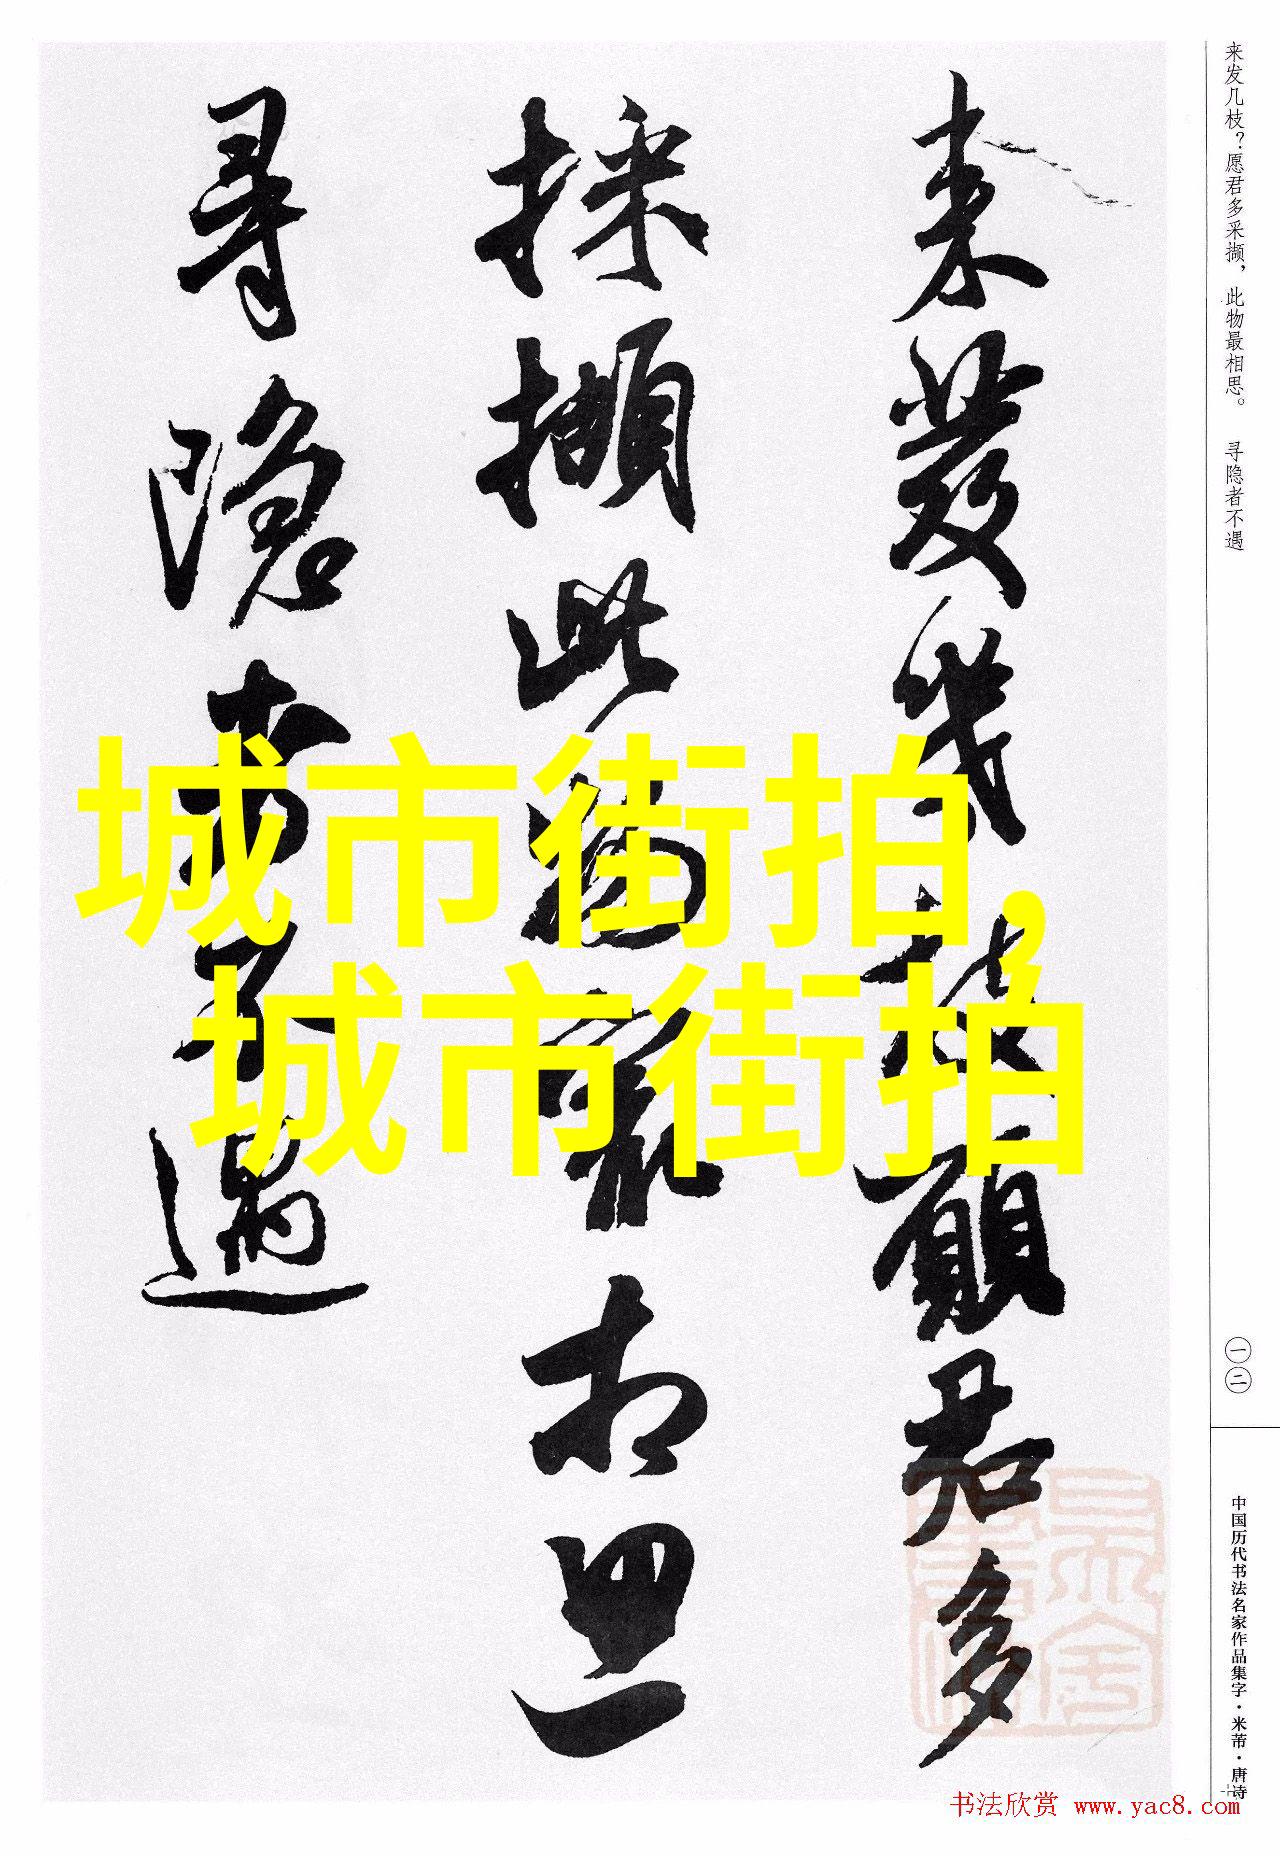 来發幾枝願君多
採擷此物最相思
尋隱者不遇
城市街拍,
城市街拍
来发几枝？愿君多采撷，此物最相思。 寻隐者不遇
一二
中国历代书法名家作品集字·米芾·唐诗
书法欣赏 www.yac8.com